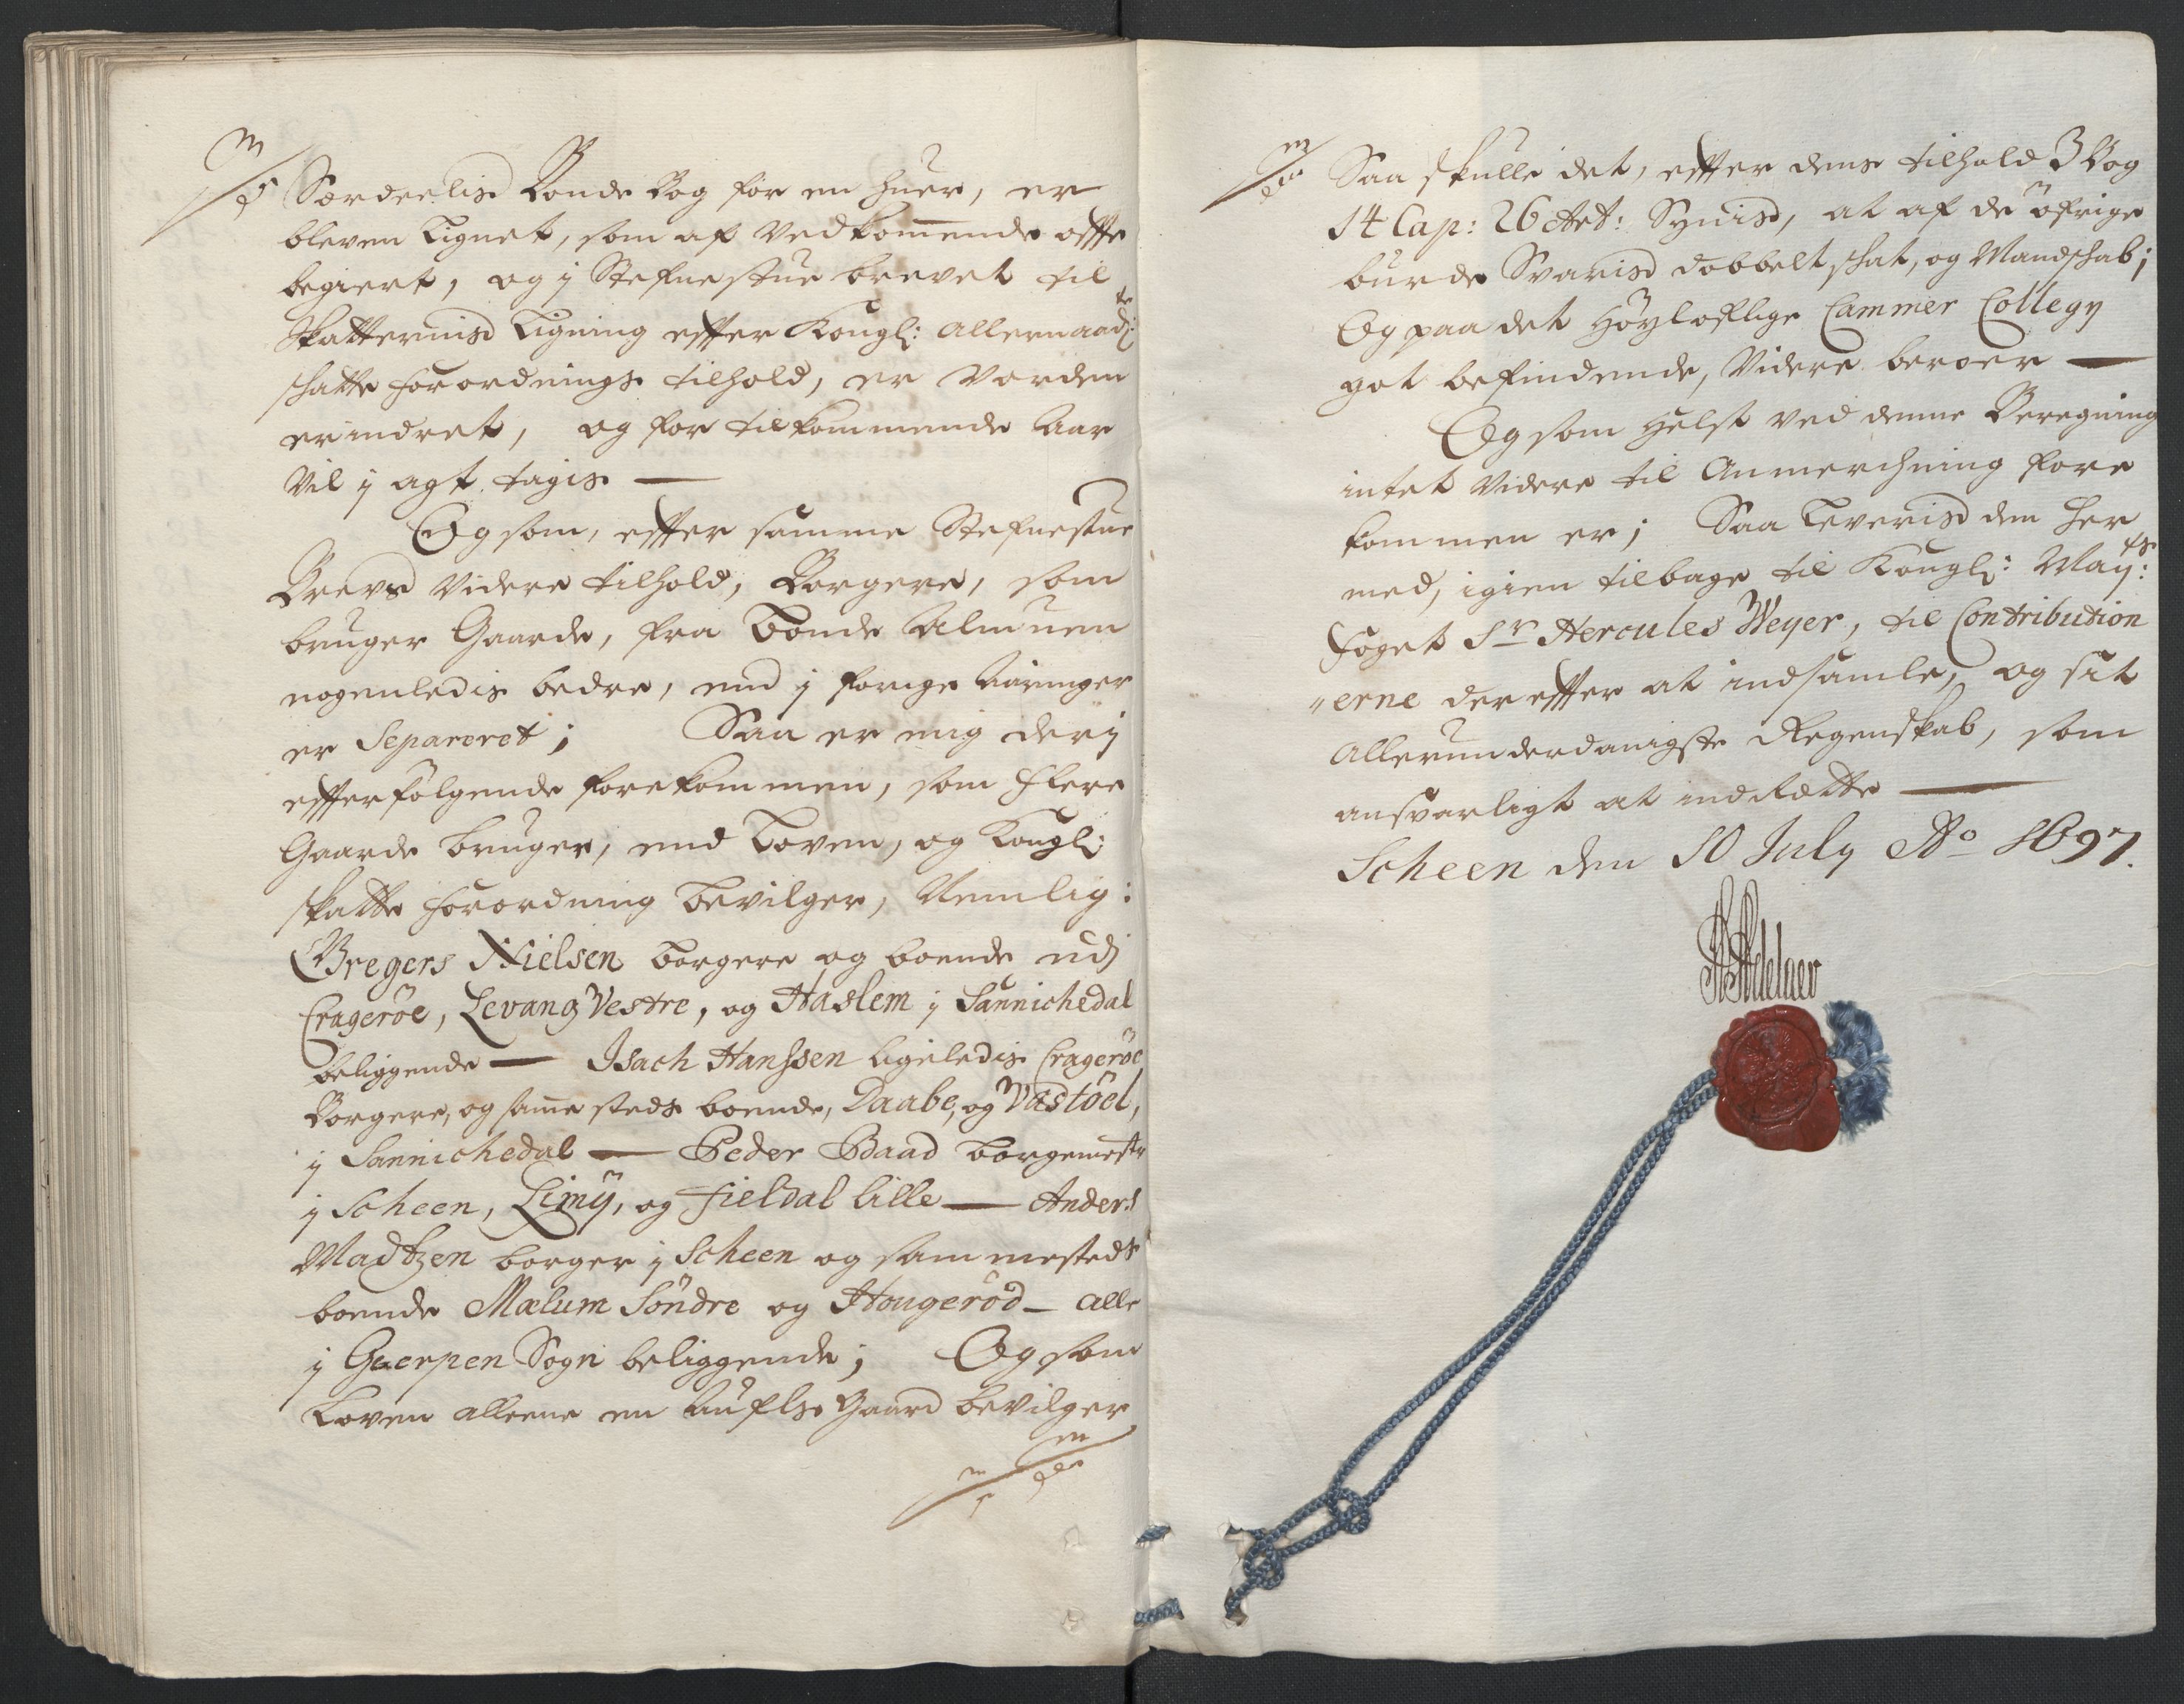 Særdeelis Bonde Bog for en huer, er
bleven Lignet, som af Vedkom̅ende offte
begiert, og j Stefnestue brevet til
Skatternis Ligning effter Kongl: Allernaad:ste
schatte forordnings tilhold, er Vorden
erindret, og for tilkommende Aar
Vil j agt tagis —
Og som, effter samme Stefnestue
Brevs Videre tilhold, Borgere, som
bruger Gaarde, fra Bonde Almuen
nogenledis bedre, end j forige Aaringer
er Separeret; Saa er mig derj
effterfölgende forekommen, som flere
Gaarde bruger, end Loven, og Kongl:
skatte forordning bevilger, Nemlig:
Gregers Nielsen borgere og boende udj
Crageröe, Levang Vestre, og Haslem j Sannichedal
beliggende — Isach Hanssen ligeledis Crageröe
Borgere, og sam̅e steds boende, Daabe, og Vastöel,
j Sannichedal — Peder Baad borgemestr
j Scheen, Limÿ, og Fieldal lille — Anders
Madtzen borger j Scheen og sammesteds
boende Mælum Söndre og Hougeröd — alle
j Gierpen Sogn beliggende; Og som
Loven alleene en Aufls Gaard bevilger
Saa skulle det, effter dens tilhold 3 Bog
14 Cap: 26 Art: Synis, at af de öfrige
burde Svaris dobbelt schat, og Mandschab;
Og paa det Höyloflige Cammer Collegy
got befindende, Videre beroer —
Og som Helst ved denne Beregning
intet Videre til Anmerchning fore
kommen er; Saa Leveris den her
med, igien tilbage til Kongl: May:ts
Foget Sr Hercules Weyer, til Contribution
"erne der effter at indsamle, og sit
Allerunderdanigste Regenskab, som
ansvarligt at indrette —
Scheen den 10 July Ao 1697.
Adelaer